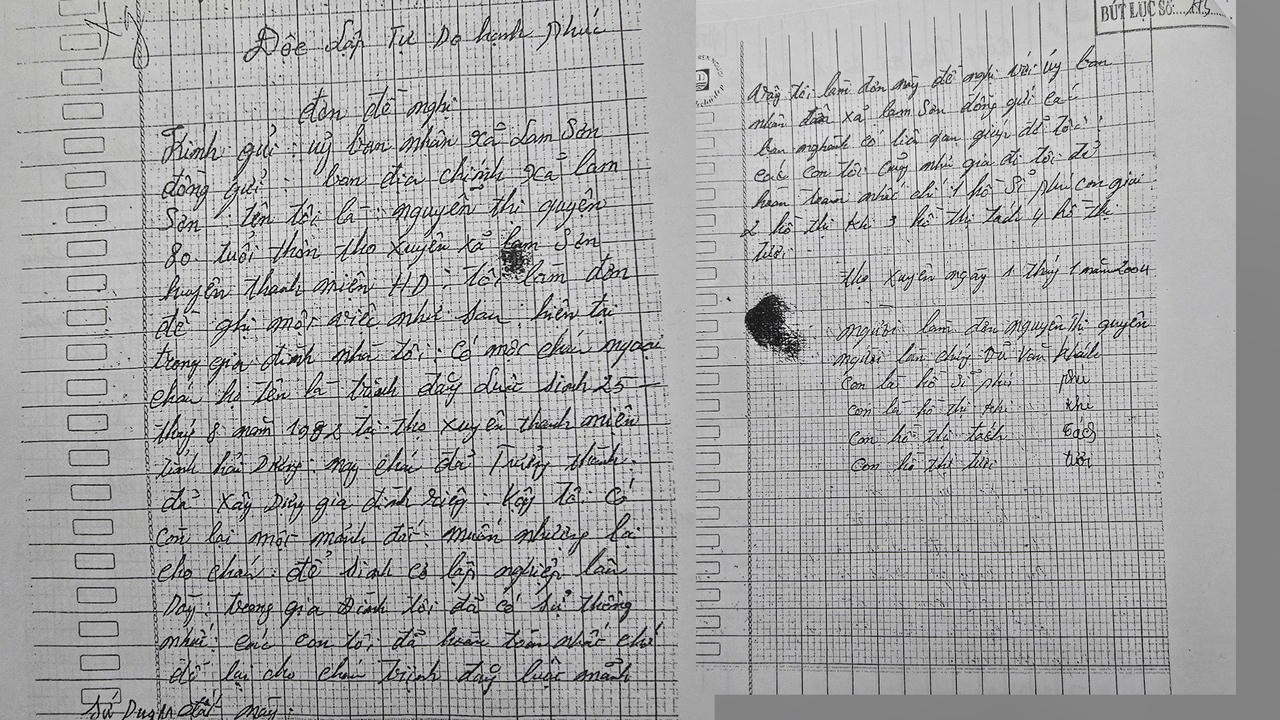 Độc lập Tự Do hạnh phúc
đơn đề nghị
Kính gửi: uỷ ban nhân xã Lam Sơn
đồng gửi: ban địa chính xã lam
Sơn: tên tôi là: nguyễn thị quyên
80 tuổi thôn thọ xuyên xã lam Sơn
huyện thanh miên HD: tôi làm đơn
đề ghị một việc như sau: hiện tại
trong gia đình nhà tôi: có một cháu ngoại
cháu họ tên là trịnh đăng sinh 25 —
tháy 8 năm 1982 tại thọ xuyên thanh miên
tỉnh hải Dương: nay cháu đã Trưởng thành:
đã xây Dựng gia đình riêng: Vậy tôi có
còn lại một mảnh đất: muốn nhường lại
cho cháu: để sinh cơ lập nghiệp lâu
Dày: trong gia Đình tôi đã có sự thống
nhất: các con tôi đã hoàn toàn nhất chí
để lại cho cháu trịnh đăng mảnh
Sử Dụng đất này:
BÚT LỤC SỐ
Vậy tôi làm đơn này đề nghị với uỷ ban
nhân dân xã lam Sơn đồng gửi các
ban nghành có liên quan giúp đỡ tôi:
các con tôi cũng như gia đình tôi đã
hoàn toàn nhất chí 1 hồ Sĩ phú con giai
2 hồ thị khi 3 hồ thị tách 4 hồ thị
tươi
thọ xuyên ngày 1 tháy 1 năm 2004
người làm đơn nguyễn thị quyên
người làm chứng Vũ Văn khánh
con là hồ Sĩ phú phú
con là hồ thị khi khi
con hồ thị tách tách
con hồ thị tươi tươi